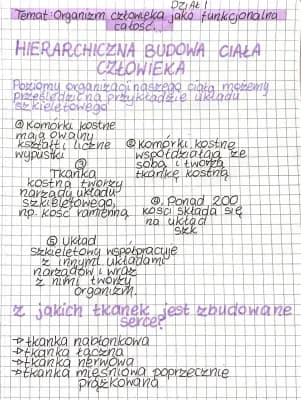 DZIAŁ 1
Temat: Organizm człowieka jako funkcjonalna
całość.
HIERARCHICZNA BUDOWA CIAŁA
CZŁOWIEKA
Poziomy organizacji naszego ciała możemy
prześledzić na przykładzie układu
szkieletowego
① Komórki kostne
mają owalny
kształt i liczne
wypustki
② Komórki kostne
współdziałają ze
sobą i tworzą
tkankę kostną
③
Tkanka
kostna tworzy
narządy układu
szkieletowego,
np. kość ramienną
④. Ponad 200
kości składa się
na układ
szk
⑤ Układ
szkieletowy współpracuje
z innymi układami
narządów i wraz
z nimi tworzy
organizm.
z jakich tkanek jest zbudowane
serce?
→tkanka nabłonkowa
→tkanka łączna
→tkanka nerwowa
→tkanka mięśniowa poprzecznie
prążkowana